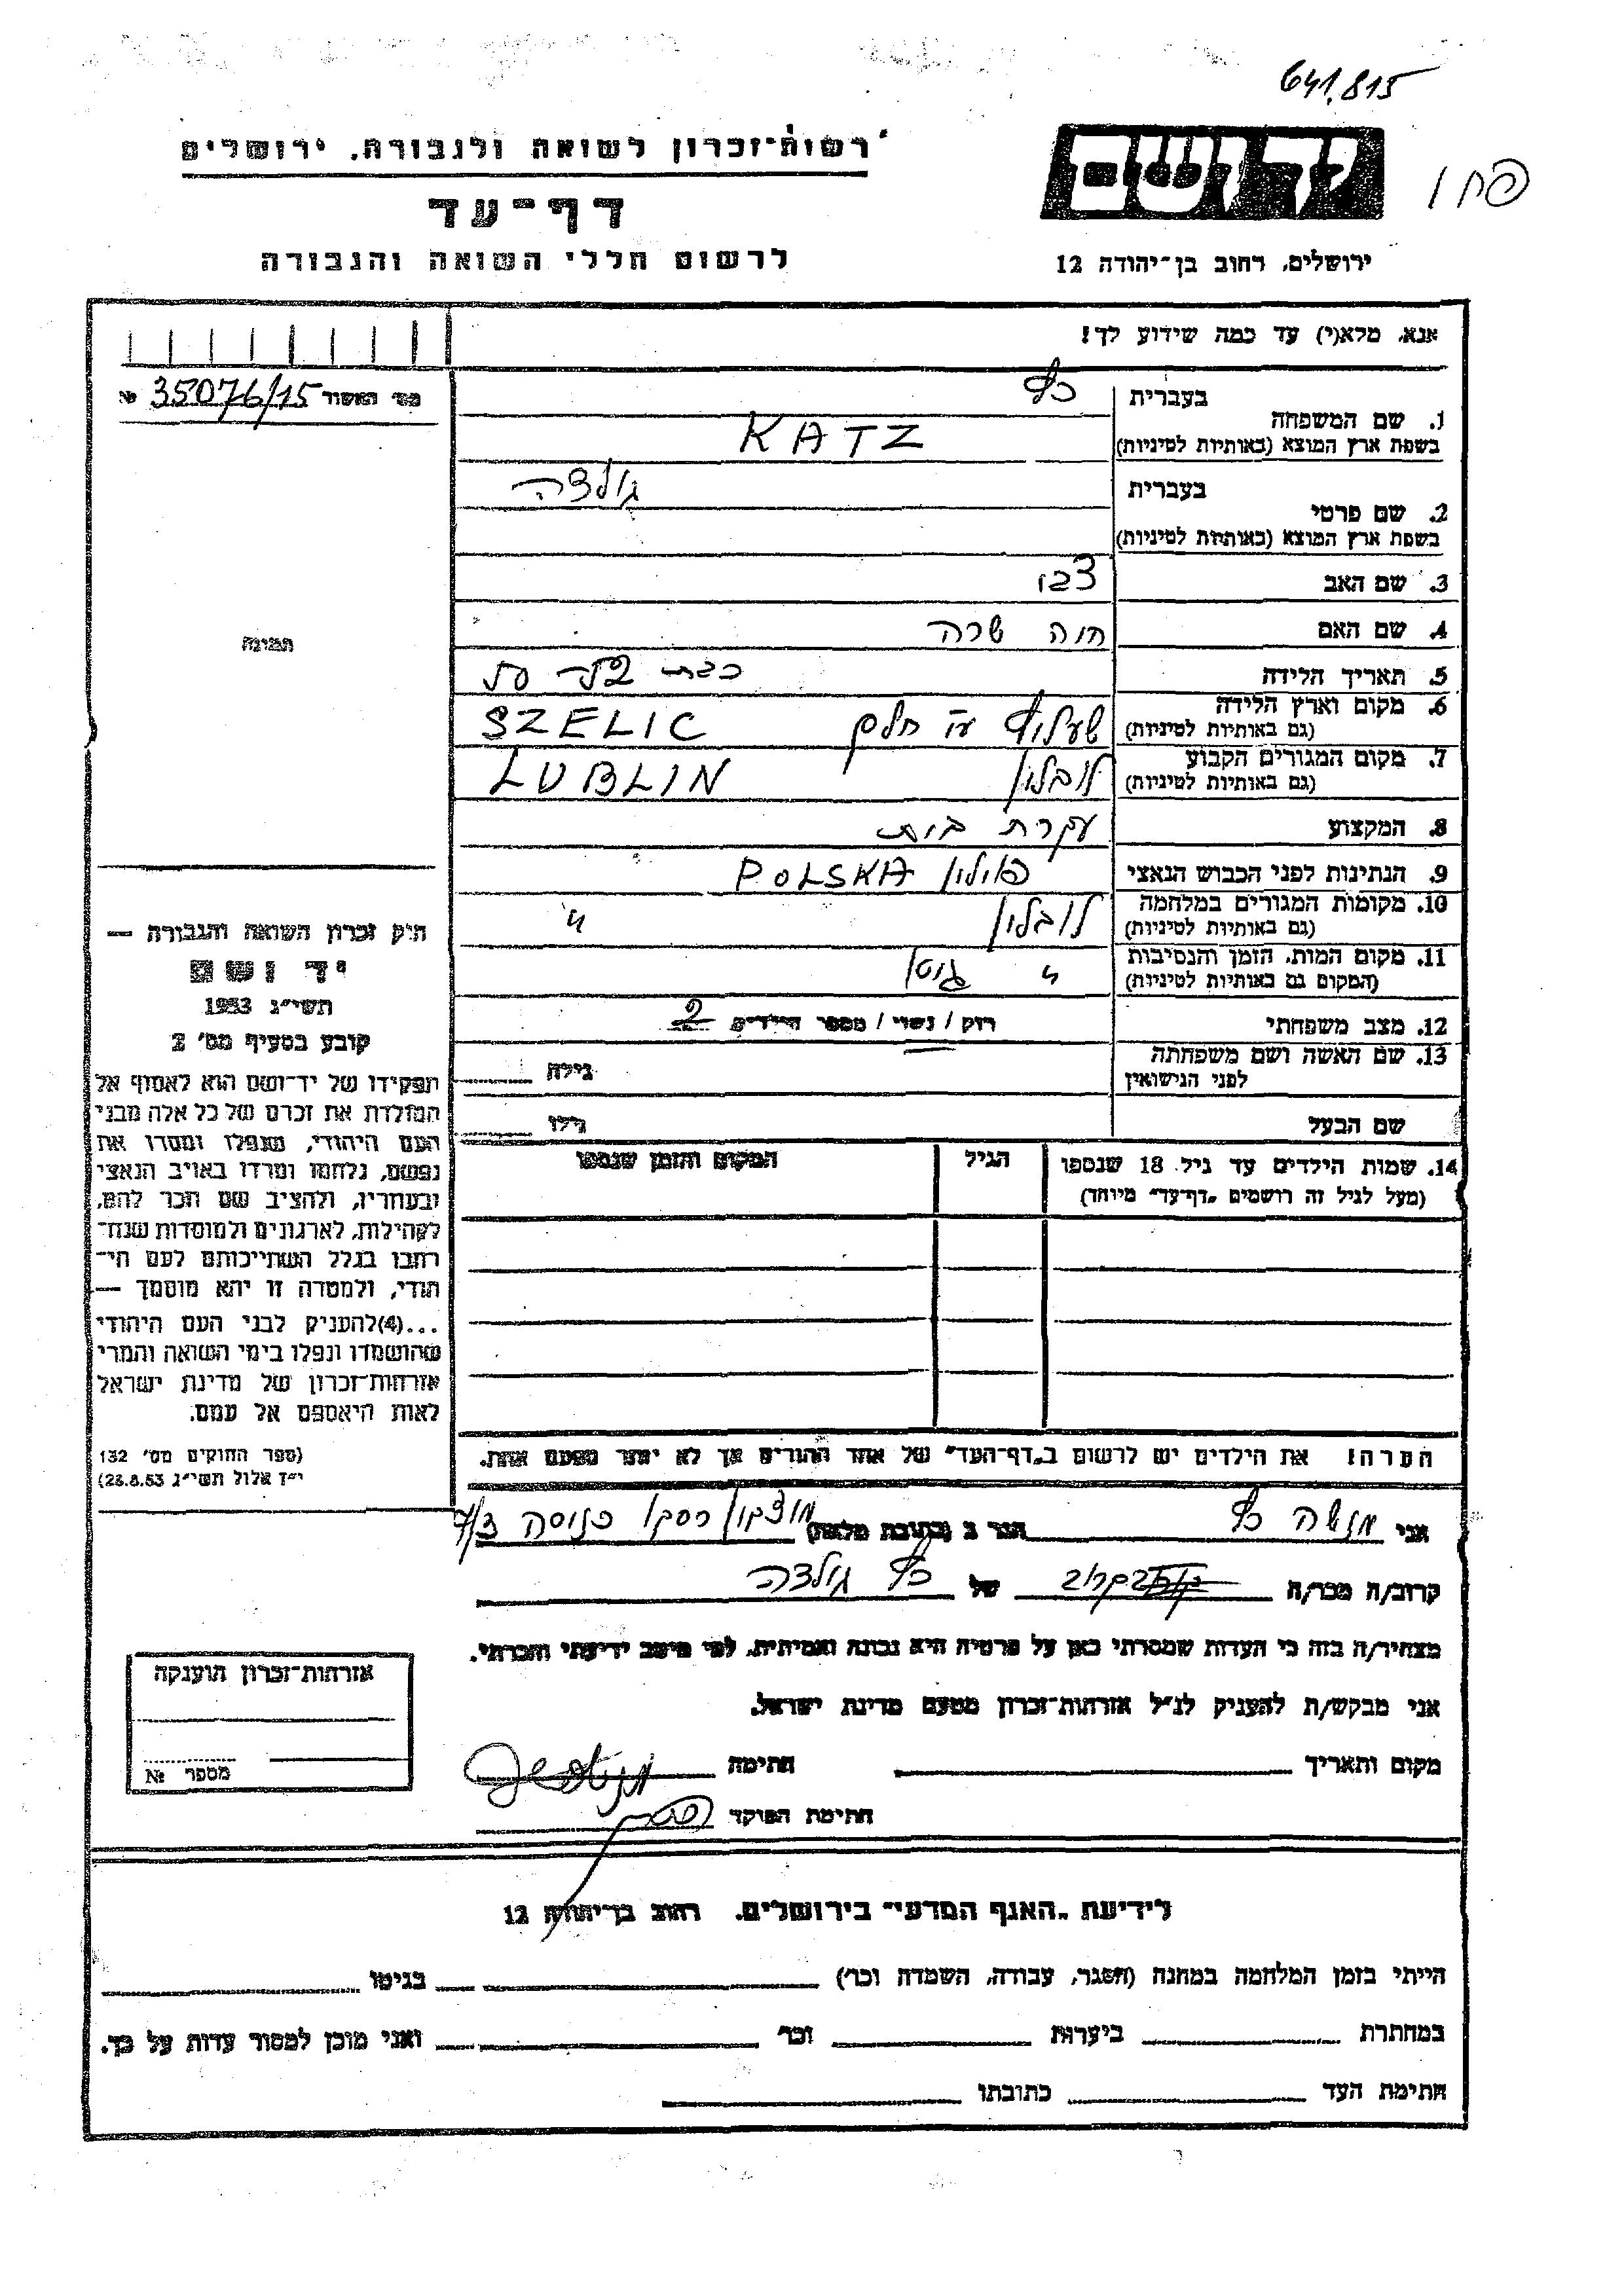 641,815
רשות־זכרון לשואה ולגבורה, ירושלים
דף־עד
לרשום חללי השואה והגבורה
יד ושם
ירושלים, רחוב בן־יהודה 12
אנא, מלא(י) עד כמה שידוע לך!
מס׳ האשור 35076/15 №
1. שם המשפחה
בעברית כץ
בשפת ארץ המוצא (באותיות לטיניות) KATZ
2. שם פרטי
בעברית גולדה
בשפת ארץ המוצא (באותיות לטיניות)
3. שם האב
4. שם האם חוה שרה
5. תאריך הלידה
6. מקום וארץ הלידה
(גם באותיות לטיניות) SZELIC
7. מקום המגורים הקבוע
(גם באותיות לטיניות) לובלין LUBLIN
8. המקצוע עקרת בית
9. הנתינות לפני הכבוש הנאצי פולין POLSKA
10. מקומות המגורים במלחמה
(גם באותיות לטיניות) לובלין "
11. מקום המות, הזמן והנסיבות
(המקום גם באותיות לטיניות) " גיטו
12. מצב משפחתי רווק / נשוי / מספר הילדים 2
13. שם האשה ושם משפחתה
לפני הנישואין גילה
שם הבעל גילו
14. שמות הילדים עד גיל 18 שנספו הגיל המקום והזמן שנספו
(מעל לגיל זה רושמים „דף־עד״ מיוחד)
הערה! את הילדים יש לרשום ב„דף־העד״ של אחד ההורים אך לא יותר מפעם אחת.
תמונה
חוק זכרון השואה והגבורה —
יד ושם
תשי״ג 1953
קובע בסעיף מס׳ 2
תפקידו של יד־ושם הוא לאסוף אל
המולדת את זכרם של כל אלה מבני
העם היהודי, שנפלו ומסרו את
נפשם, נלחמו ומרדו באויב הנאצי
ובעוזריו, ולהציב שם וזכר להם,
לקהילות, לארגונים ולמוסדות שנח־
רבו בגלל השתייכותם לעם הי־
הודי, ולמטרה זו יהא מוסמך —
...(4)להעניק לבני העם היהודי
שהושמדו ונפלו בימי השואה והמרי
אזרחות־זכרון של מדינת ישראל
לאות היאספם אל עמם.
(ספר החוקים מס׳ 132
י״ז אלול תשי״ג 28.8.53)
אני מנשה כץ הגר ב (כתובת מלאה)
קרוב/ה מכר/ה של כץ גולדה
מצהיר/ה בזה כי העדות שמסרתי כאן על פרטיה היא נכונה ואמיתית, לפי מיטב ידיעתי והכרתי.
אני מבקש/ת להעניק לנ״ל אזרחות־זכרון מטעם מדינת ישראל.
מקום ותאריך חתימה
חתימת הפוקד
אזרחות־זכרון הוענקה
מספר №
לידיעת „האגף המדעי״ בירושלים, רחוב בן־יהודה 12
הייתי בזמן המלחמה במחנה (הסגר, עבודה, השמדה וכר׳) בגיטו
במחתרת ביערות וכר׳ ואני מוכן למסור עדות על כך.
חתימת העד כתובתו